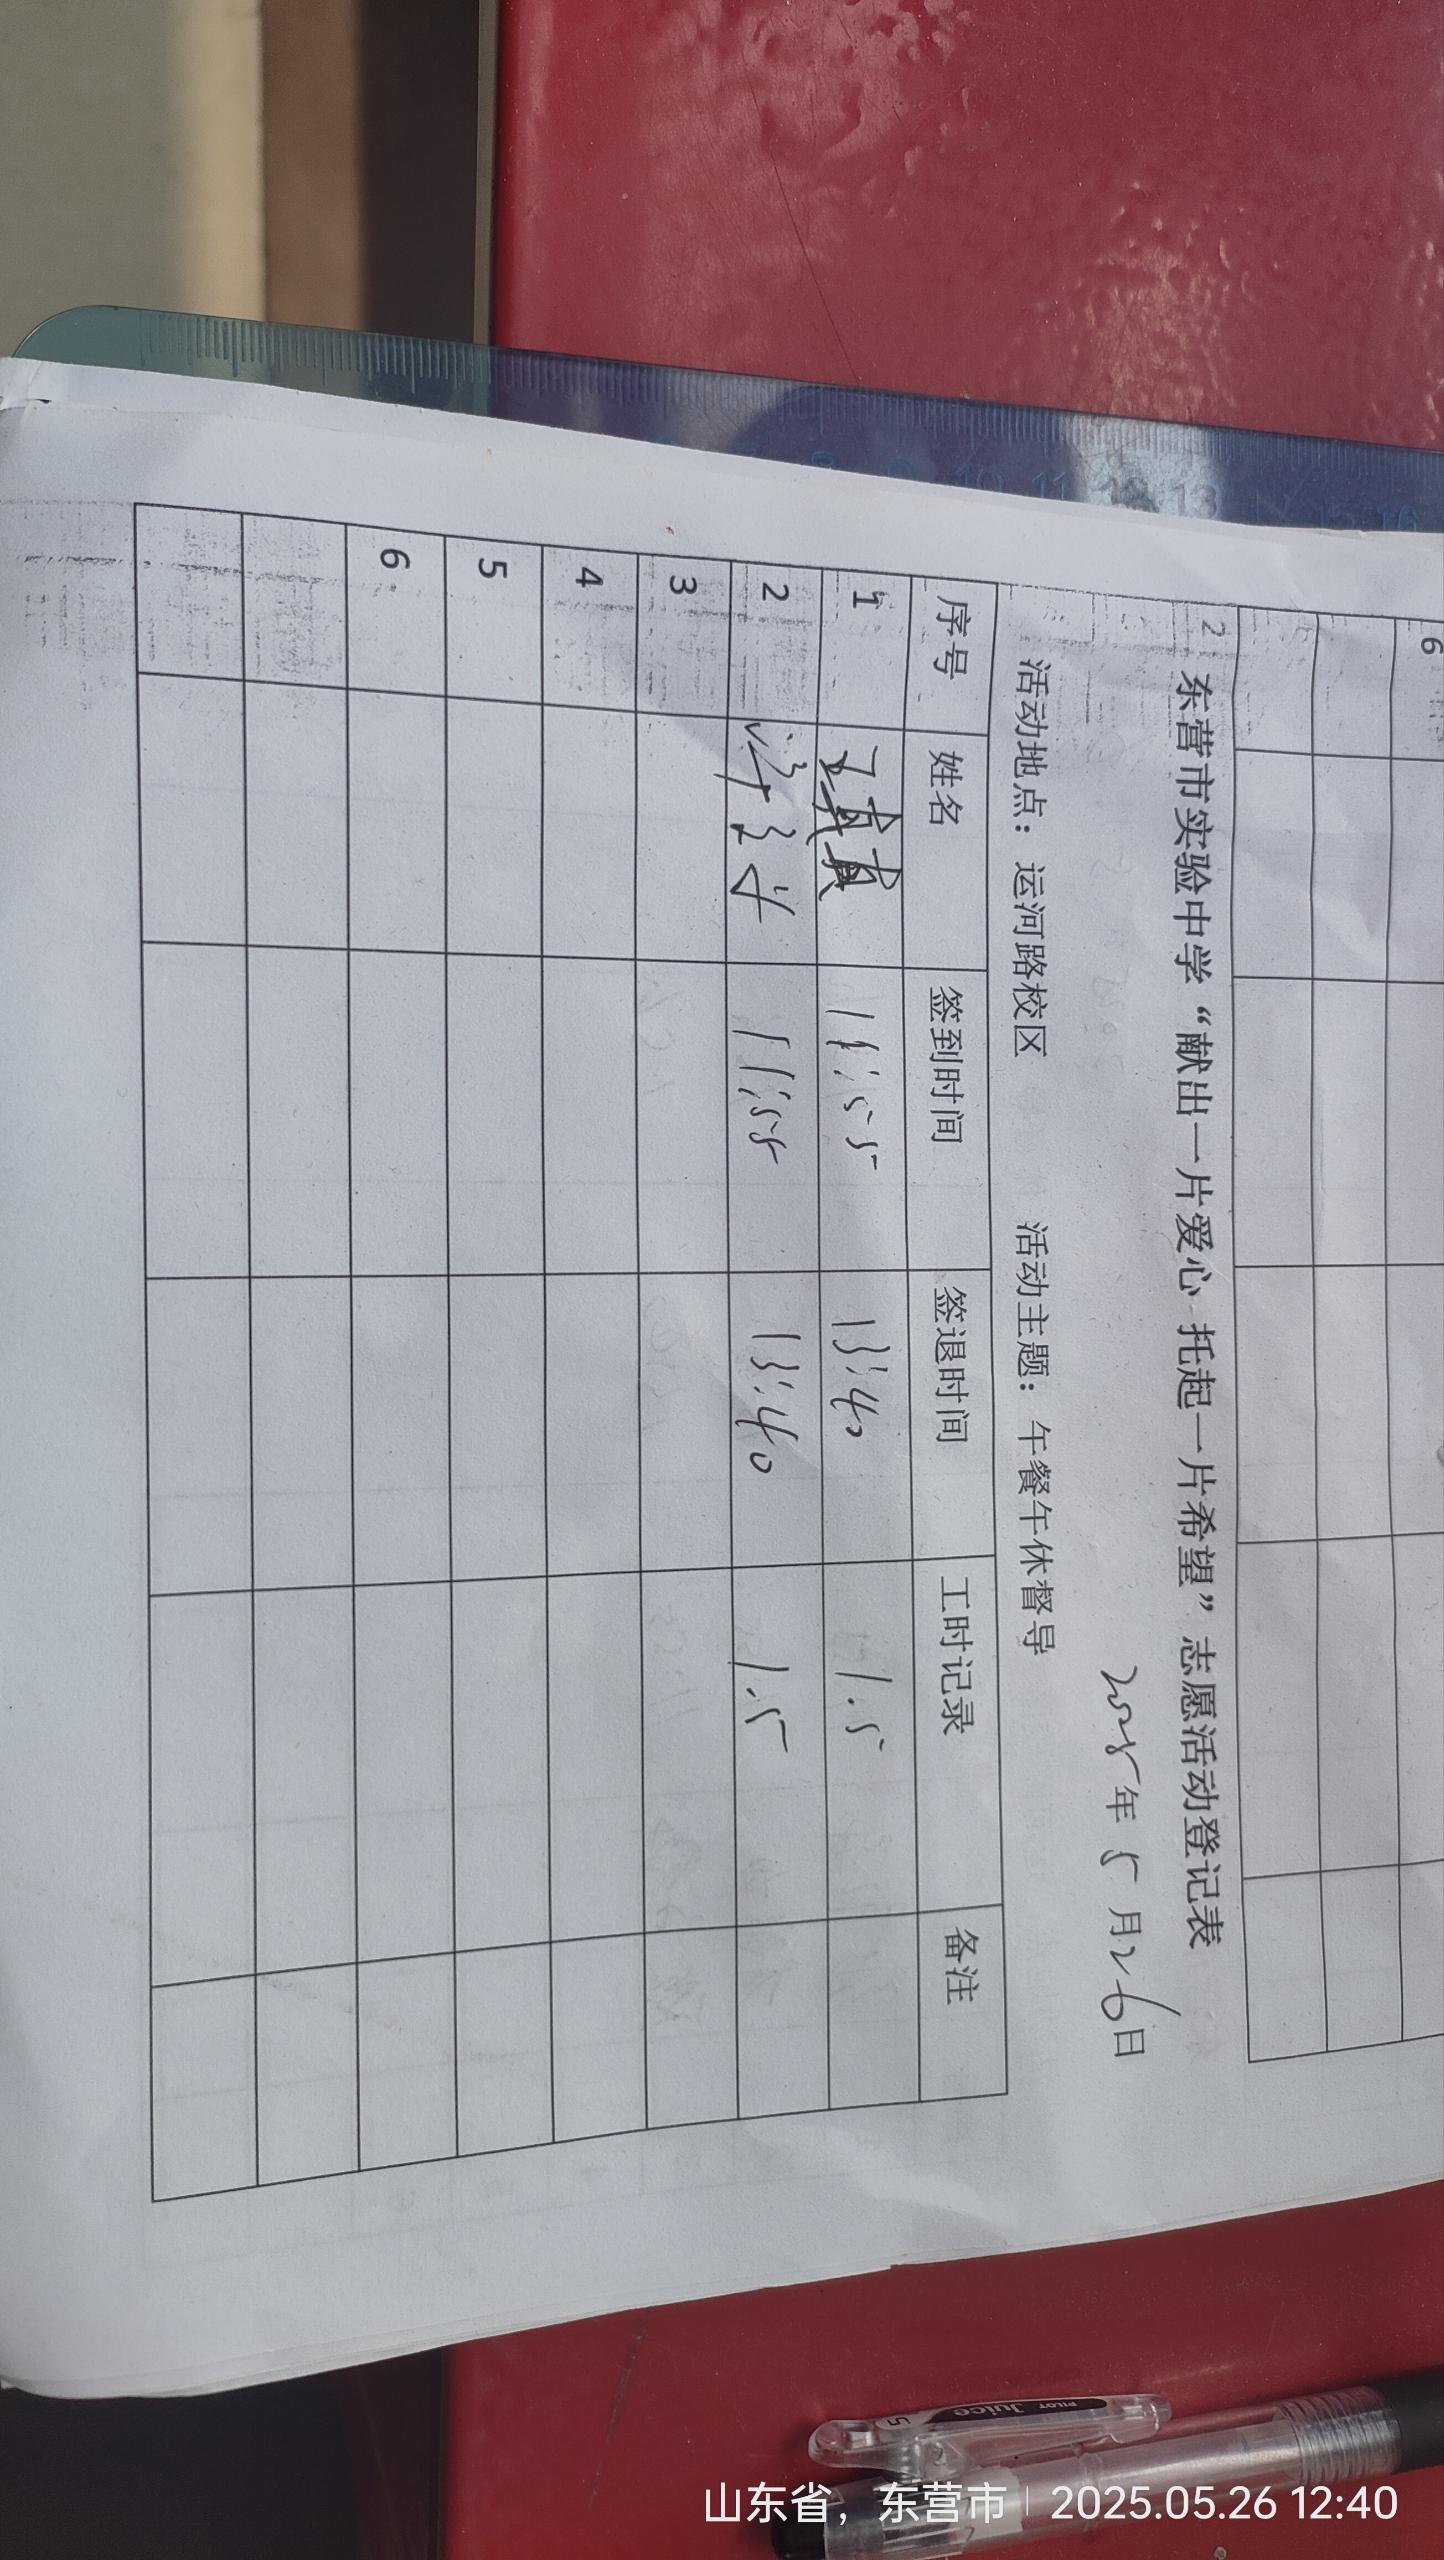 6
2
东营市实验中学“献出一片爱心 托起一片希望”志愿活动登记表
2025年 5 月26日
活动地点：运河路校区 活动主题：午餐午休督导
序号 姓名 签到时间 签退时间 工时记录 备注
1 王真真 11:55 13:40 1.5
2 11:55 13:40 1.5
3
4
5
6
7 8 9 10 11 12 13 15 16
PILOT Juice
山东省，东营市 | 2025.05.26 12:40